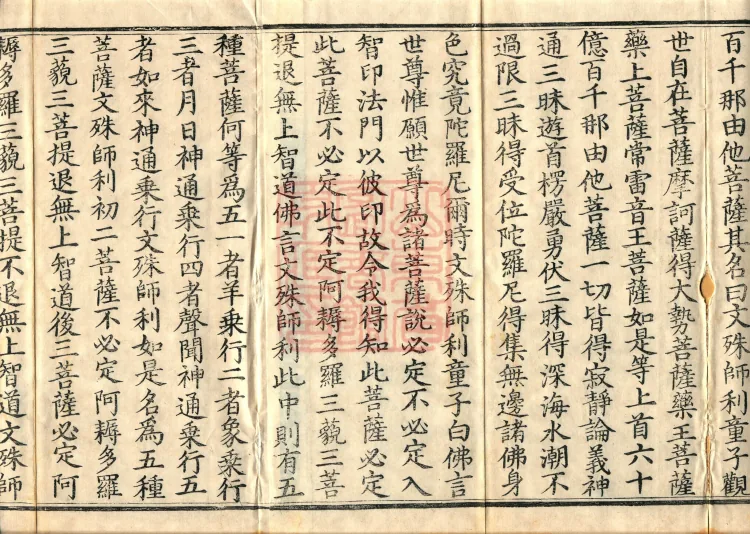 百千那由他菩薩其名曰文殊師利童子觀
世自在菩薩摩訶薩得大勢菩薩藥王菩薩
藥上菩薩常雷音王菩薩如是等上首六十
億百千那由他菩薩一切皆得寂靜論義神
通三昧遊首楞嚴勇伏三昧得深海水潮不
過限三昧得受位陀羅尼得集無邊諸佛身
色究竟陀羅尼爾時文殊師利童子白佛言
世尊惟願世尊為諸菩薩說必定不必定入
智印法門以彼印故令我得知此菩薩必定
此菩薩不必定此不定阿耨多羅三藐三菩
提退無上智道佛言文殊師利此中則有五
種菩薩何等為五一者羊乘行二者象乘行
三者月日神通乘行四者聲聞神通乘行五
者如來神通乘行文殊師利如是名為五種
菩薩文殊師利初二菩薩不必定阿耨多羅
三藐三菩提退無上智道後三菩薩必定阿
耨多羅三藐三菩提不退無上智道文殊師